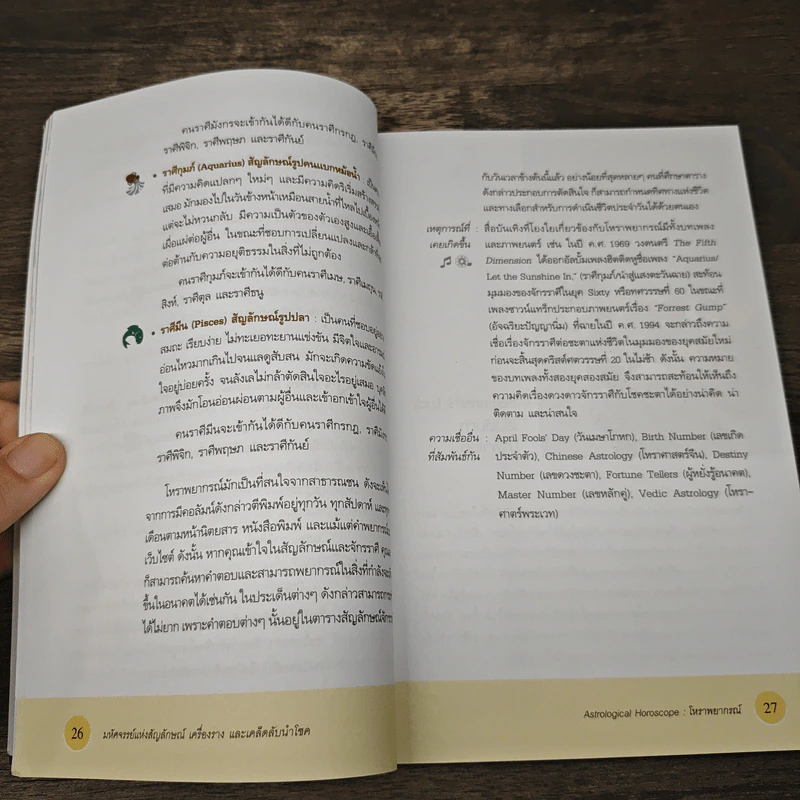 คนราศีมังกรจะเข้ากันได้ดีกับคนราศีกรกฎ, ราศีมีน,
ราศีพิจิก, ราศีพฤษภ และราศีกันย์
• ราศีกุมภ์ (Aquarius) สัญลักษณ์รูปคนแบกหม้อน้ำ : เป็น
ที่มีความคิดแปลกๆ ใหม่ๆ และมีความคิดริเริ่มสร้างสรรค์
เสมอ มักมองไปในวันข้างหน้าเหมือนสายน้ำที่ไหลไปเบื้องหน้า
แต่จะไม่หวนกลับ มีความเป็นตัวของตัวเองสูงและเอื้อเฟื้อ
เผื่อแผ่ต่อผู้อื่น ในขณะที่ชอบการเปลี่ยนแปลงและกล้าที่จะ
ต่อต้านกับความอยุติธรรมในสิ่งที่ไม่ถูกต้อง
คนราศีกุมภ์จะเข้ากันได้ดีกับคนราศีเมษ, ราศีเมถุน, ราศี
สิงห์, ราศีตุล และราศีธนู
• ราศีมีน (Pisces) สัญลักษณ์รูปปลา : เป็นคนที่ชอบอยู่อย่าง
สมถะ เรียบง่าย ไม่ทะเยอทะยานแข่งขัน มีจิตใจและอารมณ์
อ่อนไหวมากเกินไปจนแลดูสับสน มักจะเกิดความขัดแย้งใน
ใจอยู่บ่อยครั้ง จนลังเลไม่กล้าตัดสินใจอะไรอยู่เสมอ บุคลิก
ภาพจึงมักโอนอ่อนผ่อนตามผู้อื่นและเข้าอกเข้าใจผู้อื่นได้ดี
คนราศีมีนจะเข้ากันได้ดีกับคนราศีกรกฎ, ราศีมังกร,
ราศีพิจิก, ราศีพฤษภ และราศีกันย์
โหราพยากรณ์มักเป็นที่สนใจจากสาธารณชน ดังจะเห็น
จากการมีคอลัมน์ดังกล่าวตีพิมพ์อยู่ทุกวัน ทุกสัปดาห์ และทุก
เดือนตามหน้านิตยสาร หนังสือพิมพ์ และแม้แต่คำพยากรณ์
เว็บไซต์ ดังนั้น หากคุณเข้าใจในสัญลักษณ์และจักรราศี คุณ
ก็สามารถค้นหาคำตอบและสามารถพยากรณ์ในสิ่งที่กำลังจะ
ขึ้นในอนาคตได้เช่นกัน ในประเด็นต่างๆ ดังกล่าวสามารถ
ได้ไม่ยาก เพราะคำตอบต่างๆ นั้นอยู่ในตารางสัญลักษณ์จักร
26 มหัศจรรย์แห่งสัญลักษณ์ เครื่องราง และเคล็ดลับนำโชค
กับวันเวลาข้างต้นนี้แล้ว อย่างน้อยที่สุดหลายๆ คนที่ศึกษาตาราง
ดังกล่าวประกอบการตัดสินใจ ก็สามารถกำหนดทิศทางแห่งชีวิต
และทางเลือกสำหรับการดำเนินชีวิตประจำวันได้ด้วยตนเอง
เหตุการณ์ที่ : สื่อบันเทิงที่โยงใยเกี่ยวข้องกับโหราพยากรณ์มีทั้งบทเพลง
เคยเกิดขึ้น และภาพยนตร์ เช่น ในปี ค.ศ. 1969 วงดนตรี The Fifth
Dimension ได้ออกอัลบั้มเพลงฮิตติดหูชื่อเพลง "Aquarius/
Let the Sunshine In," (ราศีกุมภ์/นำสู่แสงตะวันฉาย) สะท้อน
มุมมองของจักรราศีในยุค Sixty หรือทศวรรษที่ 60 ในขณะที่
เพลงซาวน์แทร็กประกอบภาพยนตร์เรื่อง "Forrest Gump"
(อัจฉริยะปัญญานิ่ม) ที่ฉายในปี ค.ศ. 1994 จะกล่าวถึงความ
เชื่อเรื่องจักรราศีต่อชะตาแห่งชีวิตในมุมมองของยุคสมัยใหม่
ก่อนจะสิ้นสุดคริสต์ศตวรรษที่ 20 ในไม่ช้า ดังนั้น ความหมาย
ของบทเพลงทั้งสองยุคสองสมัย จึงสามารถสะท้อนให้เห็นถึง
ความคิดเรื่องดวงดาวจักรราศีกับโชคชะตาได้อย่างน่าคิด น่า
ติดตาม และน่าสนใจ
ความเชื่ออื่น : April Fools' Day (วันเมษาโกหก), Birth Number (เลขเกิด
ที่สัมพันธ์กัน ประจำตัว), Chinese Astrology (โหราศาสตร์จีน), Destiny
Number (เลขดวงชะตา), Fortune Tellers (ผู้หยั่งรู้อนาคต),
Master Number (เลขหลักคู่), Vedic Astrology (โหรา-
ศาสตร์พระเวท)
Astrological Horoscope : โหราพยากรณ์ 27